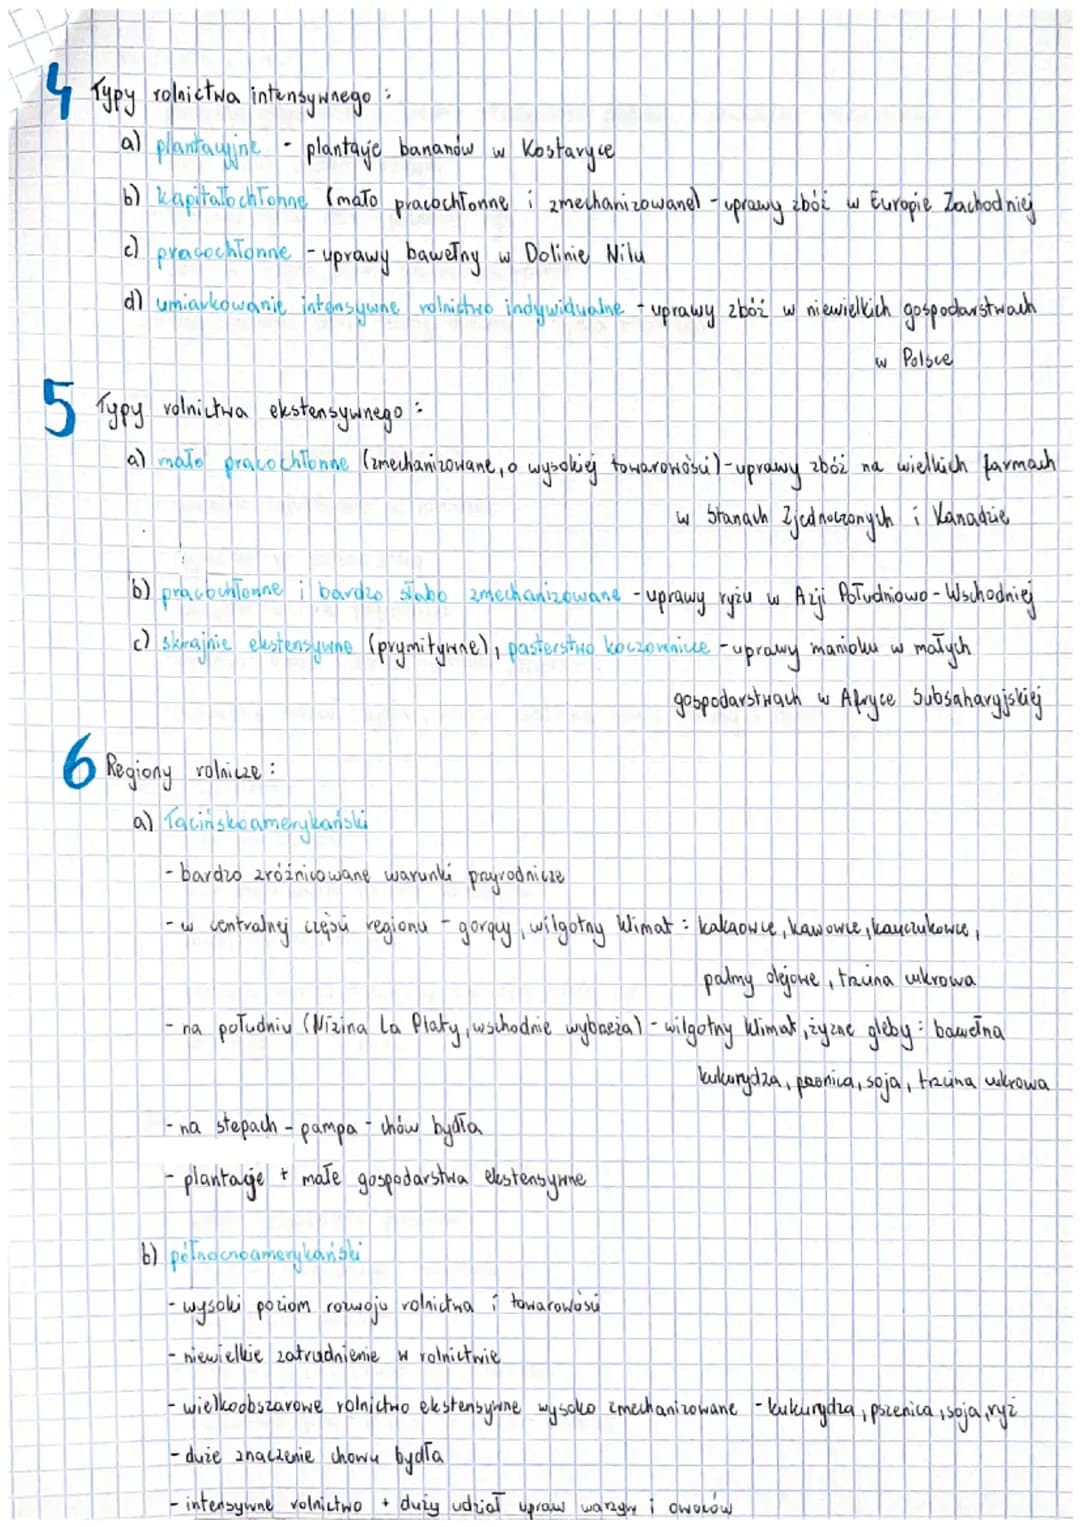 4 Typy rolnictwa intensywnego :
a) plantacyjne - plantacje bananów w Kostaryce
b) kapitałochłonne (mało pracochłonne i zmechanizowane) - uprawy zbóż w Europie Zachodniej
c) pracochłonne - uprawy bawełny w Dolinie Nilu
d) umiarkowanie intensywne rolnictwo indywidualne - uprawy zbóż w niewielkich gospodarstwach
w Polsce
5 Typy rolnictwa ekstensywnego :
a) mało pracochłonne (zmechanizowane, o wysokiej towarowości) - uprawy zbóż na wielkich farmach
w Stanach Zjednoczonych i Kanadzie
b) pracochłonne i bardzo słabo zmechanizowane - uprawy ryżu w Azji Południowo - Wschodniej
c) skrajnie ekstensywne (prymitywne), pasterstwo koczownicze - uprawy manioku w małych
gospodarstwach w Afryce Subsaharyjskiej
6 Regiony rolnicze :
a) łacińskoamerykański
- bardzo zróżnicowane warunki przyrodnicze
- w centralnej części regionu - gorący, wilgotny klimat : kakaowce, kawowce, kauczukowce,
palmy olejowe, trzcina cukrowa
- na południu (Nizina La Platy, wschodnie wybrzeża) - wilgotny klimat, żyzne gleby : bawełna
kukurydza, pszenica, soja, trzcina cukrowa
- na stepach - pampa - chów bydła
- plantacje + małe gospodarstwa ekstensywne
b) północnoamerykański
- wysoki poziom rozwoju rolnictwa i towarowości
- niewielkie zatrudnienie w rolnictwie
- wielkoobszarowe rolnictwo ekstensywne wysoko zmechanizowane - kukurydza, pszenica, soja, ryż
- duże znaczenie chowu bydła
- intensywne rolnictwo + duży udział upraw warzyw i owoców